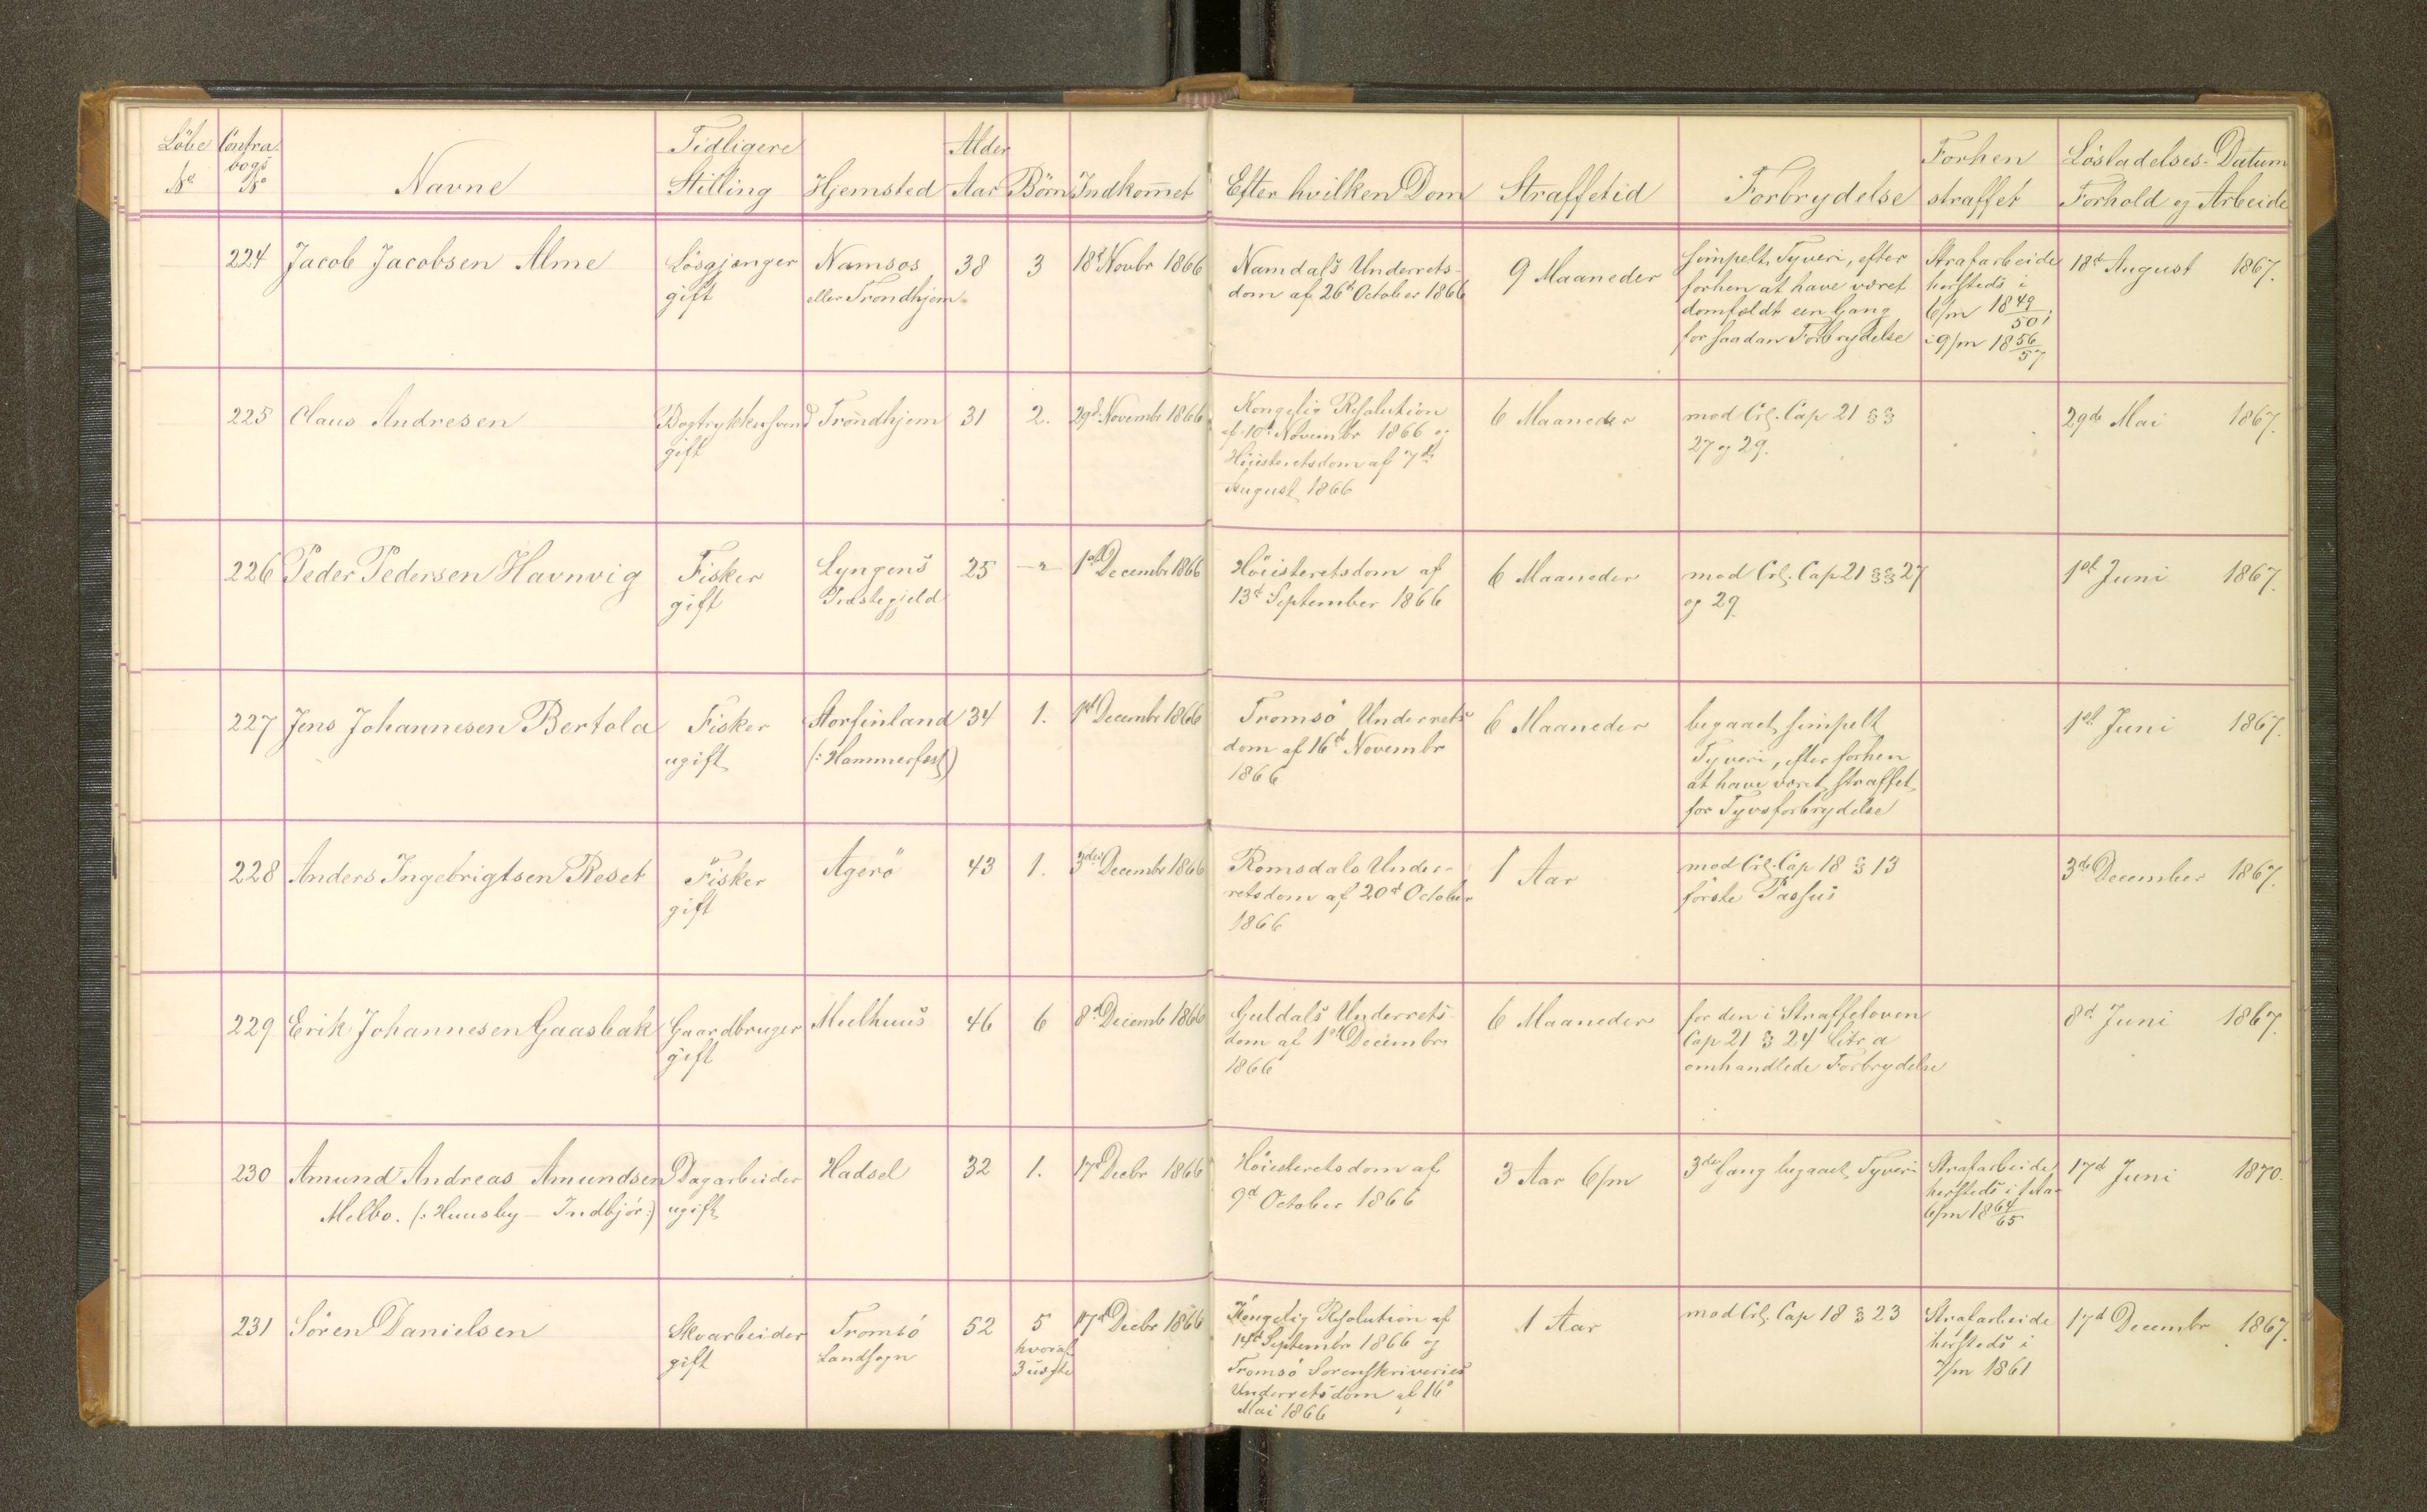 Löbe Nº
Contra bogs Nº
Navne
Tidligere Stilling
Hjemsted
Alder Aar
Börn
Indkom̅et
Efter hvilken Dom
Straffetid
Forbrydelse
Forhen straffet
Lösladelses-Datum
Forhold og Arbeide
224
Jacob Jacobsen Alme
Lösgjænger
gift
Namsos
eller Trondhjem.
38
3
18d Novbr 1866
Namdals Underrets-
dom af 26d October 1866
9 Maaneder
simpelt Tyveri, efter
forhen at have været
domfældt een Gang
for saadan Forbrydelse
Strafarbeide
hersteds i
6/m 1849/50;
i 9/m 1856/57
18d August 1867.
225
Claus Andresen
Bogtrykkersvend
gift
Trondhjem
31
2.
29d Novembr 1866
Kongelig Resolution
af 10d Novembr 1866 og
Höiesteretsdom af 7de
August 1866
6 Maaneder
mod Crl. Cap 21 §§
27 og 29.
29de Mai 1867.
226
Peder Pedersen Havnvig
Fisker
gift
Lyngens
Præstegjeld
25
1st Decembr 1866
Höiesteretsdom af
13d September 1866
6 Maaneder
mod Crl. Cap 21 §§ 27
og 29.
1st Juni 1867.
227
Jens Johannesen Bertola
Fisker
ugift
Storfinland
(: Hammerfest)
34
1.
1st Decembr 1866
Tromsö Underrets
dom af 16d Novembr
1866
6 Maaneder
begaaet simpelt
Tyveri, efter forhen
at have været straffet
for Tyvsforbrydelse
1st Juni 1867.
228
Anders Ingebrigtsen Reset
Fisker
gift
Agerö
43
1.
3die Decembr 1866
Romsdals Under-
retsdom af 20d October
1866
1 Aar
mod Crl. Cap 18 § 13
förste Passus
3de December 1867.
229
Erik Johannesen Gaasbak
Gaardbruger
gift
Meelhuus
46
6
8d Decemb 1866
Guldals Underrets-
dom af 1st Decembr
1866
6 Maaneder
for den i Straffeloven
Cap 21 § 24 Litr a
omhandlede Forbrydelse
8d Juni 1867.
230
Amund Andreas Amundsen
Melbo. (: Huusby - Indbjör:)
Dagarbeider
ugift
Hadsel
32
1.
17d Decbr 1866
Höiesteretsdom af
9d October 1866
3 Aar 6/m
3die Gang begaaet Tyveri
Strafarbeide
hersteds i 1 Aar
6/m 1864/65
17d Juni 1870.
231
Sören Danielsen
Skoarbeider
gift
Tromsö
Landsogn
52
5
hvoraf
3 uægte
17d Decbr 1866
Kongelig Resolution af
14d Septembr 1866 og
Tromsö Sorenskriveries
Underretsdom af 16d
Mai 1866
1 Aar
mod Crl. Cap 18 § 23
Strafarbeide
hersteds i
7/m 1861
17d Decembr 1867.